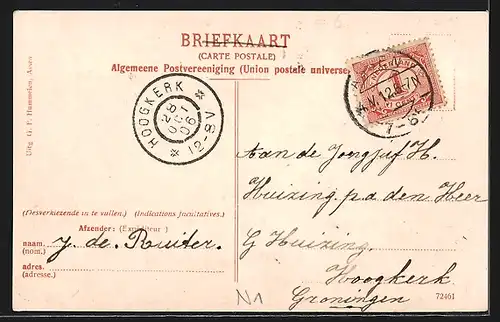 BRIEFKAART
(CARTE POSTALE)
Algemeene Postvereeniging (Union postale universe
HOOGKERK
12-8V
7-8
Uitg G. P. Hummelen, Assen
Aan de Jongjuf H.
Huizing p.a den Heer
G Huizing.
Hoogkerk
Groningen
(Desverkiezende in te vullen.) (Indications facultatives.)
Afzender: (Expéditeur)
naam. J. de Ruiter.
(nom.)
adres.
(adresse.)
N1
72461